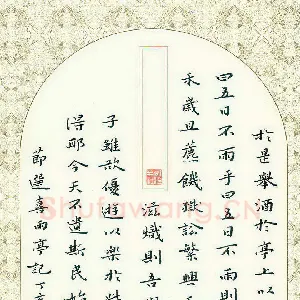 於是舉酒於亭上以
曰五日不雨乎曰五日不雨則
禾歲且薦饑獄訟繁興
滋熾則吾
子雖欲優遊以樂於此
得耶今天不遺斯民始
節選喜雨亭記丁
Shufawang.CN